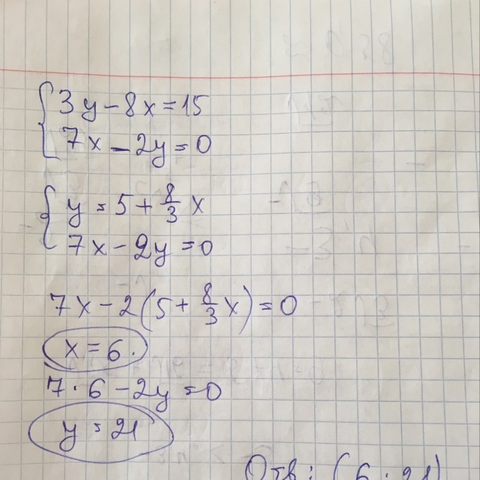 3y-8x=15
7x-2y=0
y=5+8/3 x
7x-2y=0
7x-2(5+8/3 x)=0
x=6.
7·6-2y=0
y=21
Отв: (6;21)